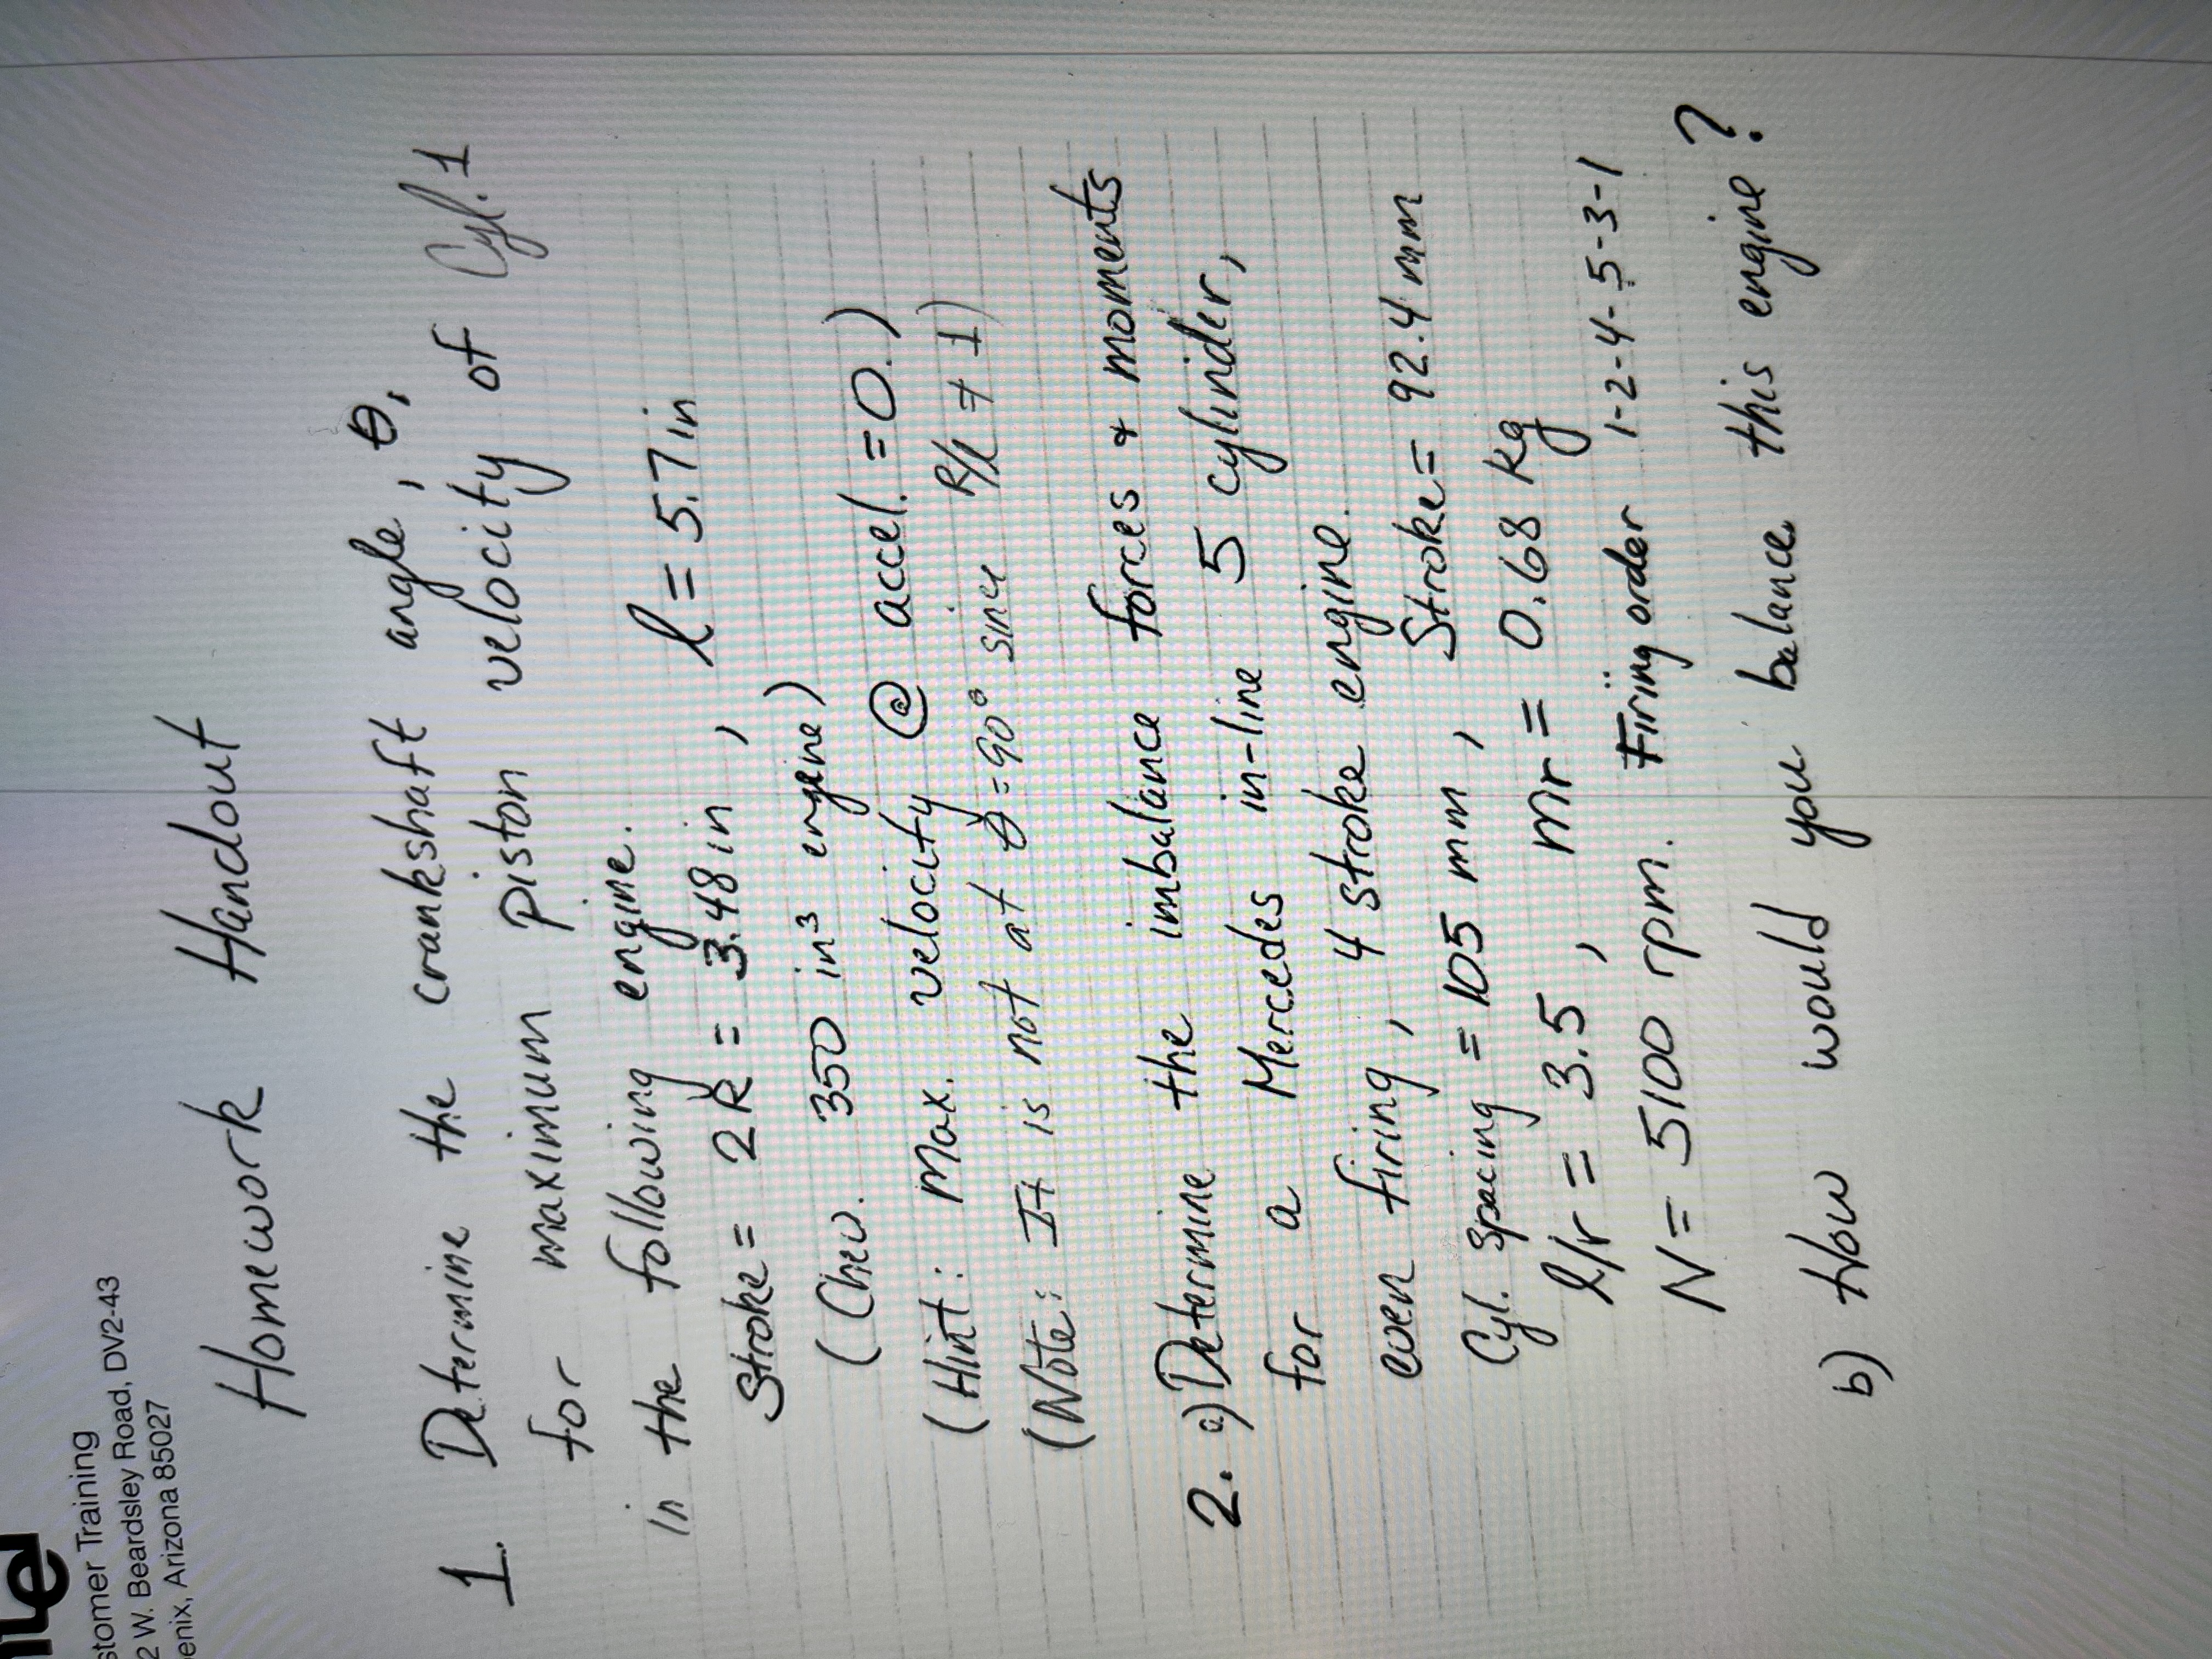 stomer Training
2 W. Beardsley Road, DV2-43
enix, Arizona 85027
Homework Handout
1. Determine the crankshaft angle, θ,
for maximum piston velocity of Cyl. 1
in the following engine.
Stroke = 2R = 3.48 in, l = 5.7 in
(Chev. 350 in³ engine)
(Hint: Max. velocity @ accel. = 0.)
(Note: It is not at θ = 90° since R/l ≠ 1)
2. a) Determine the imbalance forces & moments
for a Mercedes in-line 5 cylinder,
even firing, 4 stroke engine.
Cyl. Spacing = 105 mm, Stroke = 92.4 mm
l/r = 3.5, mr = 0.68 Kg
N = 5100 rpm. Firing order 1-2-4-5-3-1
b) How would you balance this engine?